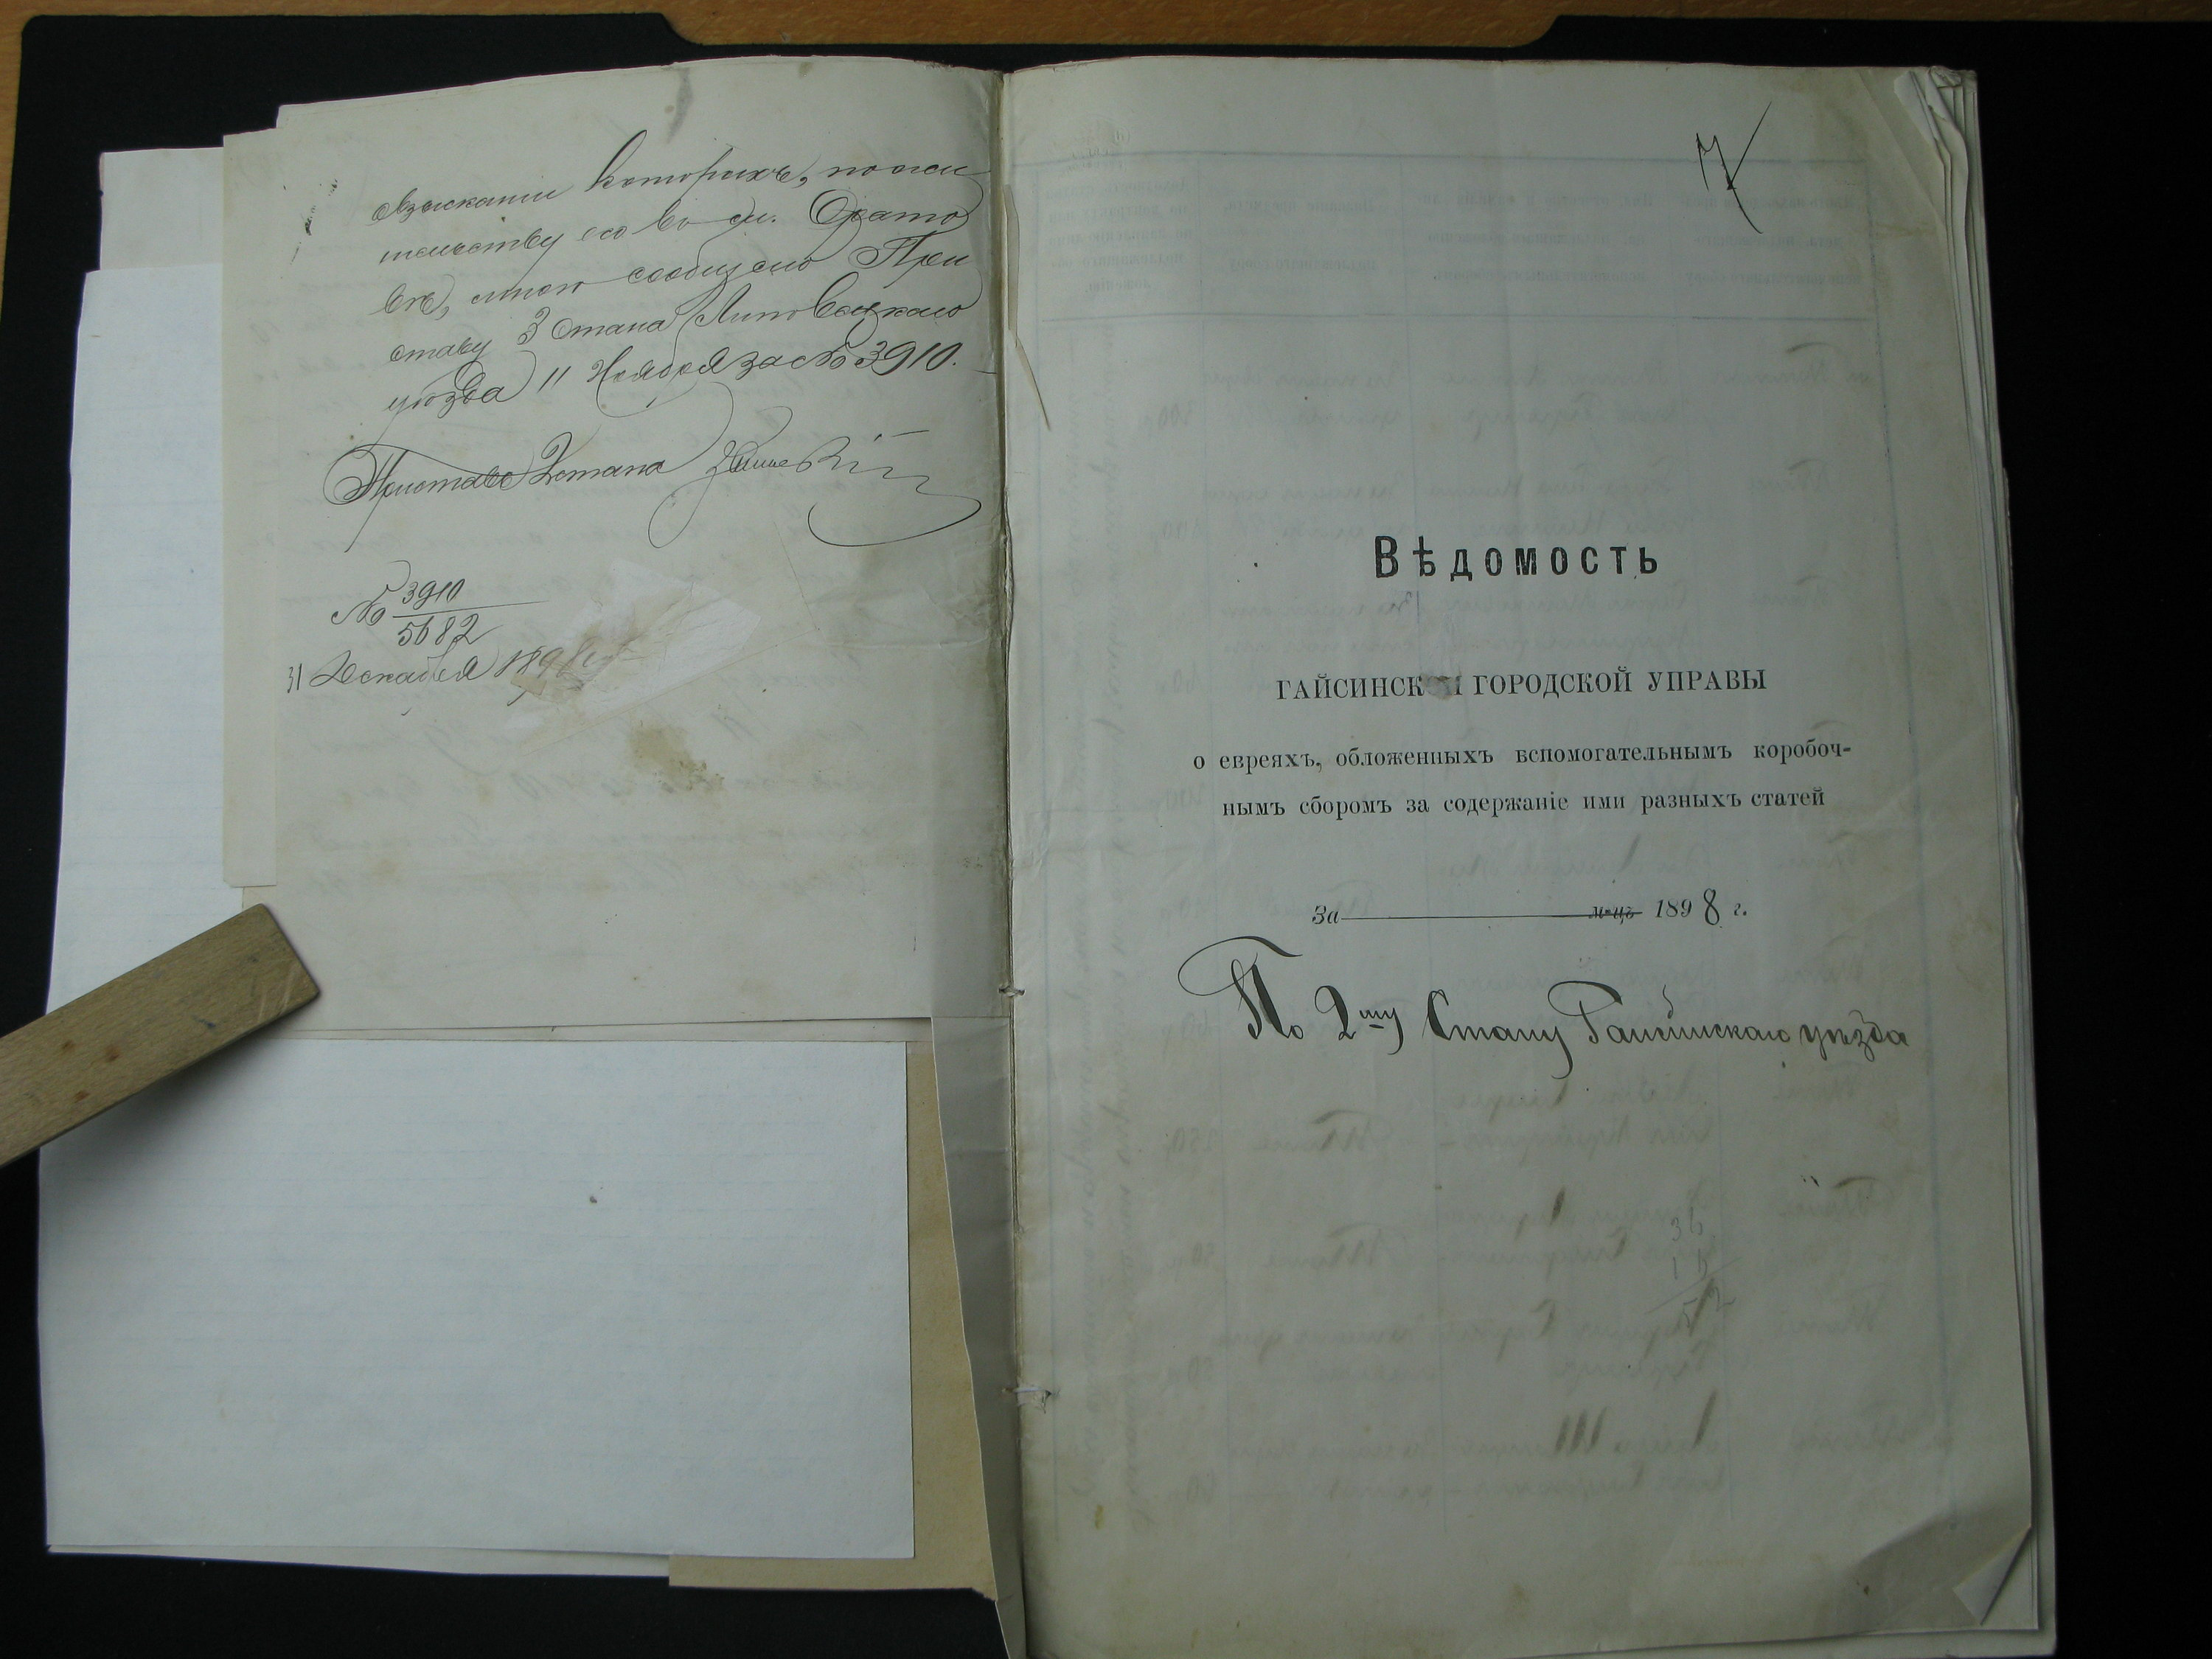 взыскании которыхъ, по жи
тельству его въ м. Орато
вѣ, мною сообщено При
ставу 3 стана Липовецкаго
уѣзда 11 Ноября за № 3910.
Приставъ 2 стана
№ 3910
5682
31 Декабря 1898 г.
7
Вѣдомость
ГАЙСИНСКОЙ ГОРОДСКОЙ УПРАВЫ
о евреяхъ, обложенныхъ вспомогательнымъ коробоч-
нымъ сборомъ за содержаніе ими разныхъ статей
За м-цъ 1898 г.
По 2му Стану Гайсинскаго уѣзда
36
16
52